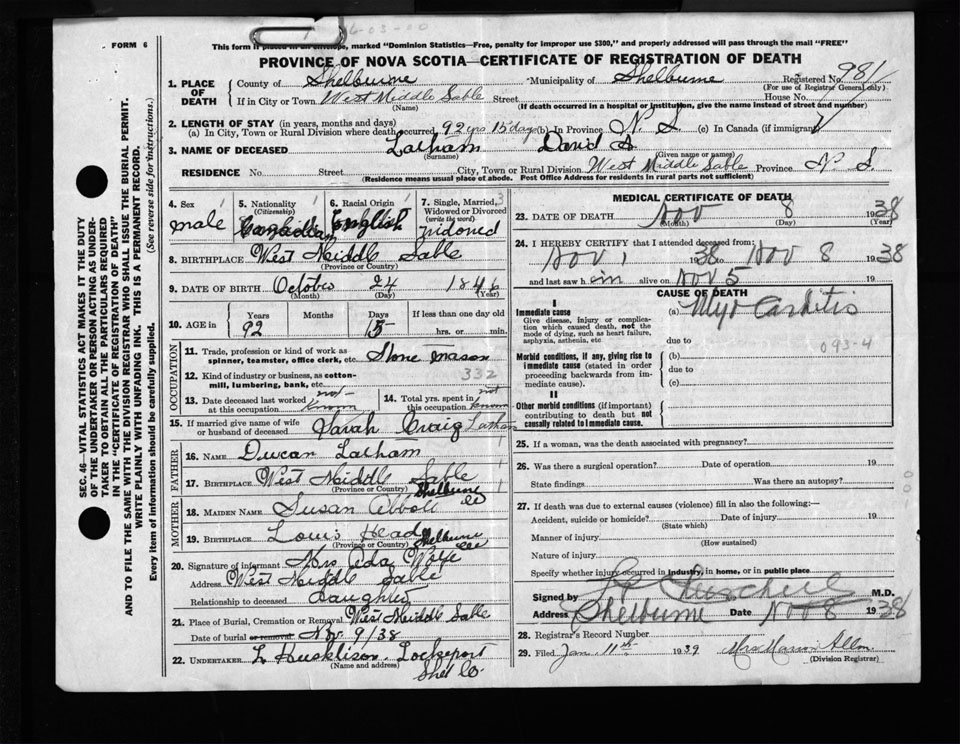 6-03-00
FORM 6
This form if placed in an envelope, marked "Dominion Statistics—Free, penalty for improper use $300," and properly addressed will pass through the mail "FREE"
PROVINCE OF NOVA SCOTIA—CERTIFICATE OF REGISTRATION OF DEATH
SEC. 46—VITAL STATISTICS ACT MAKES IT THE DUTY
OF THE UNDERTAKER OR PERSON ACTING AS UNDER-
TAKER TO OBTAIN ALL THE PARTICULARS REQUIRED
IN THE "CERTIFICATE OF REGISTRATION OF DEATH"
AND TO FILE THE SAME WITH THE DIVISION REGISTRAR WHO SHALL ISSUE THE BURIAL PERMIT.
WRITE PLAINLY WITH UNFADING INK. THIS IS A PERMANENT RECORD.
Every item of information should be carefully supplied. (See reverse side for instructions.)
1. PLACE OF DEATH County of Shelburne Municipality of Shelburne Registered No. 981
(For use of Registrar General only)
If in City or Town West Middle Sable Street House No.
(Name) (If death occurred in a hospital or institution, give the name instead of street and number)
2. LENGTH OF STAY (in years, months and days)
(a) In City, Town or Rural Division where death occurred 92 yrs 15 days (b) In Province N. S (c) In Canada (if immigrant)
3. NAME OF DECEASED Latham David A.
(Surname) (Given name or names)
RESIDENCE No. Street City, Town or Rural Division West Middle Sable Province N. S.
(Residence means usual place of abode. Post Office Address for residents in rural parts not sufficient)
4. Sex 5. Nationality (Citizenship) 6. Racial Origin 7. Single, Married, Widowed or Divorced (write the word)
male Canadian English Widowed
8. BIRTHPLACE West Middle Sable
(Province or Country)
9. DATE OF BIRTH October 24 1846
(Month) (Day) (Year)
10. AGE in Years Months Days If less than one day old
92 15 hrs. or min.
OCCUPATION
11. Trade, profession or kind of work as spinner, teamster, office clerk, etc. Stone mason
12. Kind of industry or business, as cotton-mill, lumbering, bank, etc. 332
13. Date deceased last worked at this occupation not known 14. Total yrs. spent in this occupation not known
15. If married give name of wife or husband of deceased Sarah Craig Latham
FATHER
16. NAME Duncan Latham
17. BIRTHPLACE West Middle Sable
(Province or Country) Shelburne Co
MOTHER
18. MAIDEN NAME Susan Abbott
19. BIRTHPLACE Louis Head
(Province or Country) Shelburne Co
20. Signature of informant Mrs Ada Wolfe
Address West Middle Sable
Relationship to deceased Daughter
21. Place of Burial, Cremation or Removal West Middle Sable
Date of burial or removal Nov 9/38
22. UNDERTAKER L Huskilson Lockeport
(Name and address) Shel Co
MEDICAL CERTIFICATE OF DEATH
23. DATE OF DEATH Nov 8 1938
(Month) (Day) (Year)
24. I HEREBY CERTIFY that I attended deceased from:
Nov 1 1938 to Nov 8 1938
and last saw him alive on Nov 5 19
CAUSE OF DEATH
I
Immediate cause (a) Myo Carditis
Give disease, injury or complication which caused death, not the mode of dying, such as heart failure, asphyxia, asthenia, etc.
due to 093-4
Morbid conditions, if any, giving rise to immediate cause (stated in order proceeding backwards from immediate cause). (b)
due to
(c)
II
Other morbid conditions (if important) contributing to death but not causally related to immediate cause.
25. If a woman, was the death associated with pregnancy?
26. Was there a surgical operation? Date of operation 19
State findings Was there an autopsy?
27. If death was due to external causes (violence) fill in also the following:—
Accident, suicide or homicide? Date of injury 19
(State which)
Manner of injury
(How sustained)
Nature of injury
Specify whether injury occurred in industry, in home, or in public place
Signed by M.D.
Address Shelburne Date Nov 8 1938
28. Registrar's Record Number
29. Filed Jan. 11th 1939 Mrs Marion Allen
(Division Registrar)